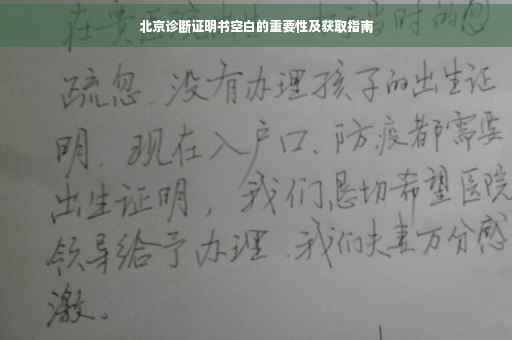 北京诊断证明书空白的重要性及获取指南
时的
疏忽、没有办理孩子的出生证
明、现在入户口、防疫都需要
出生证明，我们恳切希望医院
领导给予办理、我们夫妻万分感
激。